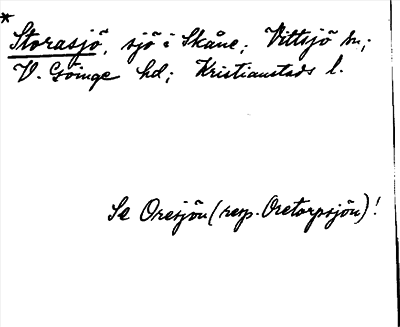 *
Storasjö, sjö i Skåne; Vittsjö sn;
V. Göinge hd; Kristianstads l.
Se Oresjön (resp. Oretorpsjön)!